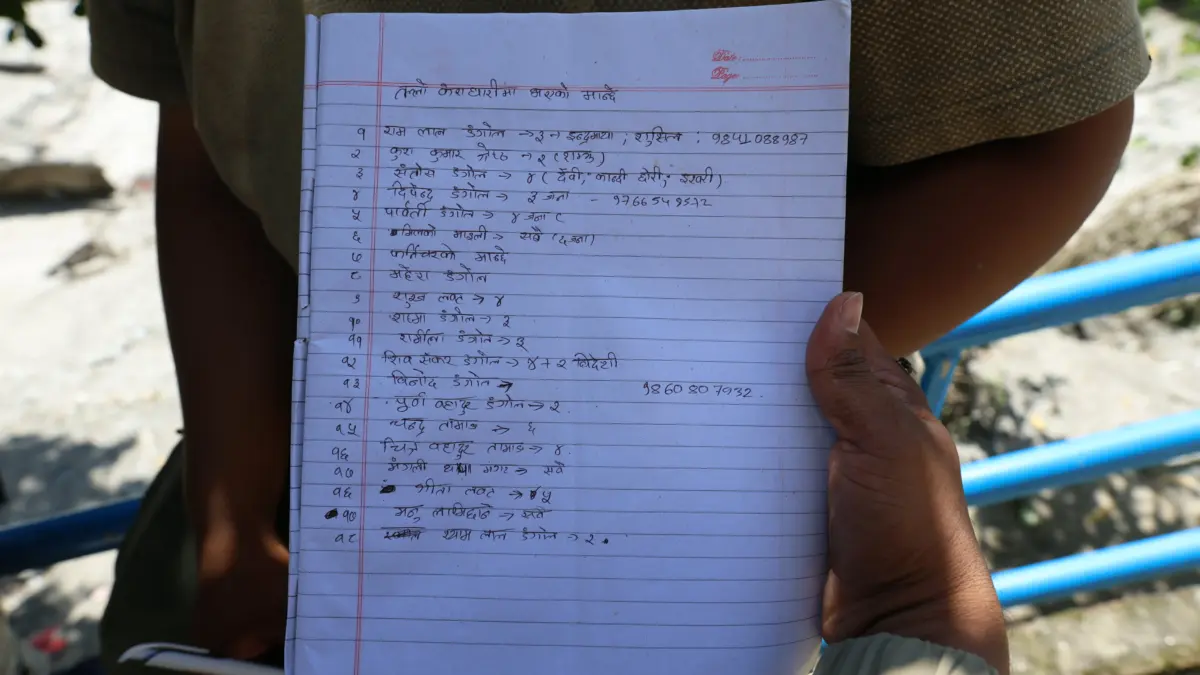 Date
Page
तल्लो केराघारीमा भएको मान्दे
१ राम लाल डंगोल → ३ न इन्द्रमाया ; सुसिल : 9841088987
२ कुश कुमार श्रेष्ठ → २ (शम्भु)
३ संतोस डंगोल → ४ ( देवी, कान्छी छोरी, इश्वरी)
४ दिपेन्द्र डंगोल → ३ जना - 9766549572
५ पार्वती डंगोल → ४ जना (
६ माइली → सबै (६ जना)
७ मान्दे
८ महेश डंगोल
९ → ४
१० शर्मा डंगोल → ३
११ शर्मीला डंगोल → ३
१२ शिव संकर डंगोल → ४ + २ विदेशी
१३ विनोद डंगोल → 9860807932.
१४ पुर्ण वहादुर डंगोल → २.
१५ चन्द्र तामाङ → ६
१६ चित्र वहादुर तामाङ → ४.
१७ मंगली थापा मगर → सबै
१६ गीता → ५
१७ मनु →
१८ श्याम लाल डंगोल → २.